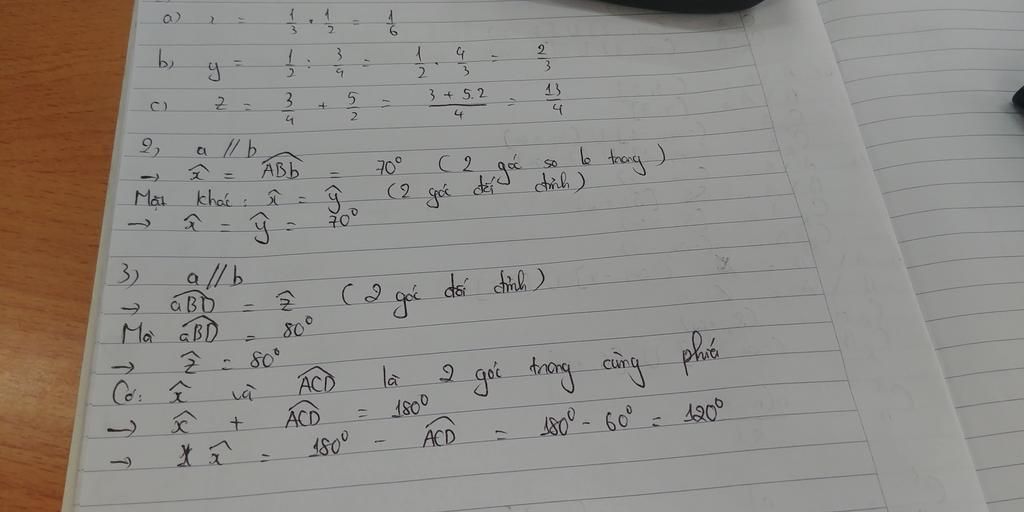 a) x = 1/3 . 1/2 = 1/6
b, y = 1/2 : 3/4 = 1/2 . 4/3 = 2/3
c) z = 3/4 + 5/2 = (3 + 5.2)/4 = 13/4
2, a // b
→ x̂ = ABb̂ = 70° ( 2 góc so le trong )
Mặt khác : x̂ = ŷ ( 2 góc đối đỉnh )
→ x̂ = ŷ = 70°
3) a // b
→ aBD̂ = ẑ ( 2 góc đối đỉnh )
Mà aBD̂ = 80°
→ ẑ = 80°
Có: x̂ và ACD̂ là 2 góc trong cùng phía
→ x̂ + ACD̂ = 180°
→ x̂ = 180° - ACD̂ = 180° - 60° = 120°